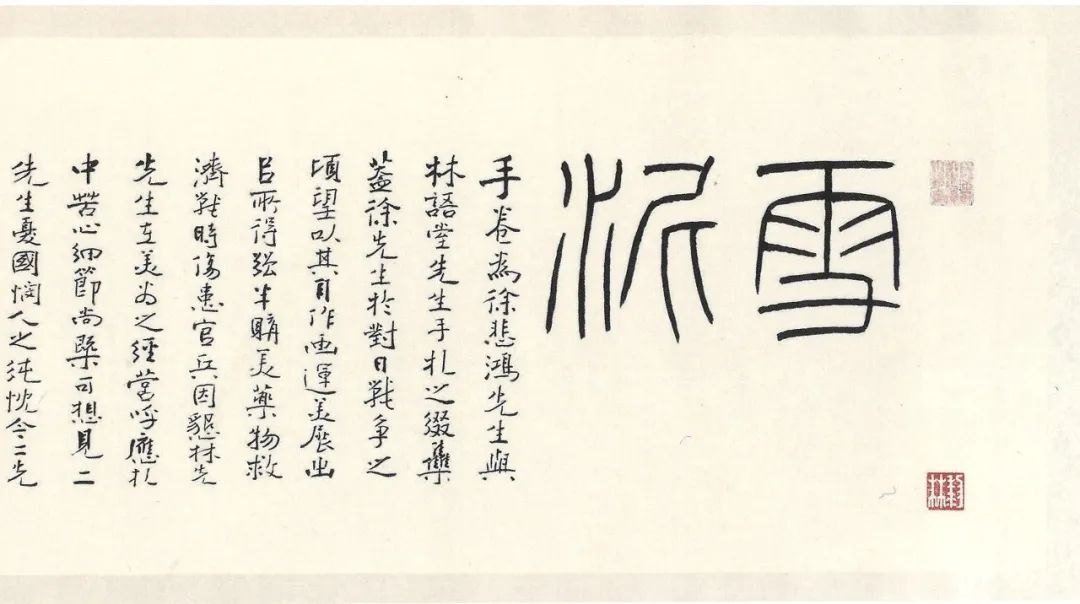 雪泥
手卷為徐悲鴻先生與
林語堂先生手札之綴雧
蓋徐先生於對日戰爭之
頃望以其自作画運美展出
㠯所得強半購美藥物救
濟戰時傷患官兵因懇林先
先生在美为之經營呼應札
中苦心細節尚槩可想見二
先生憂國憫人之純忱今二先